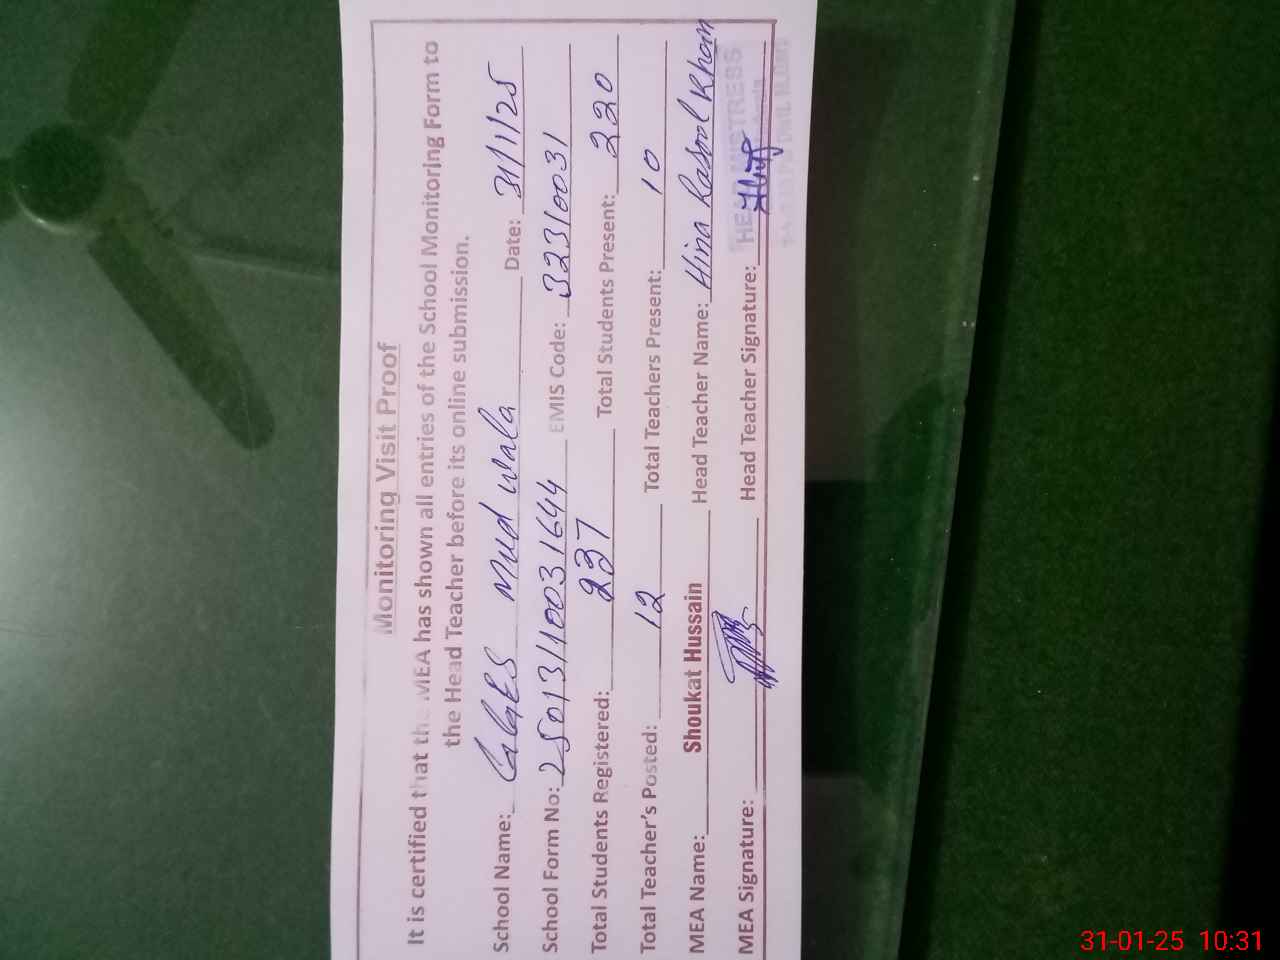 Monitoring Visit Proof
It is certified that the MEA has shown all entries of the School Monitoring Form to
the Head Teacher before its online submission.
School Name: GGES Mud wala Date: 31/1/25
School Form No: 25013110031644 EMIS Code: 32310031
Total Students Registered: 237 Total Students Present: 220
Total Teacher's Posted: 12 Total Teachers Present: 10
MEA Name: Shoukat Hussain Head Teacher Name: Hina Rasool Khan
MEA Signature: Head Teacher Signature:
HEADMISTRESS
31-01-25 10:31